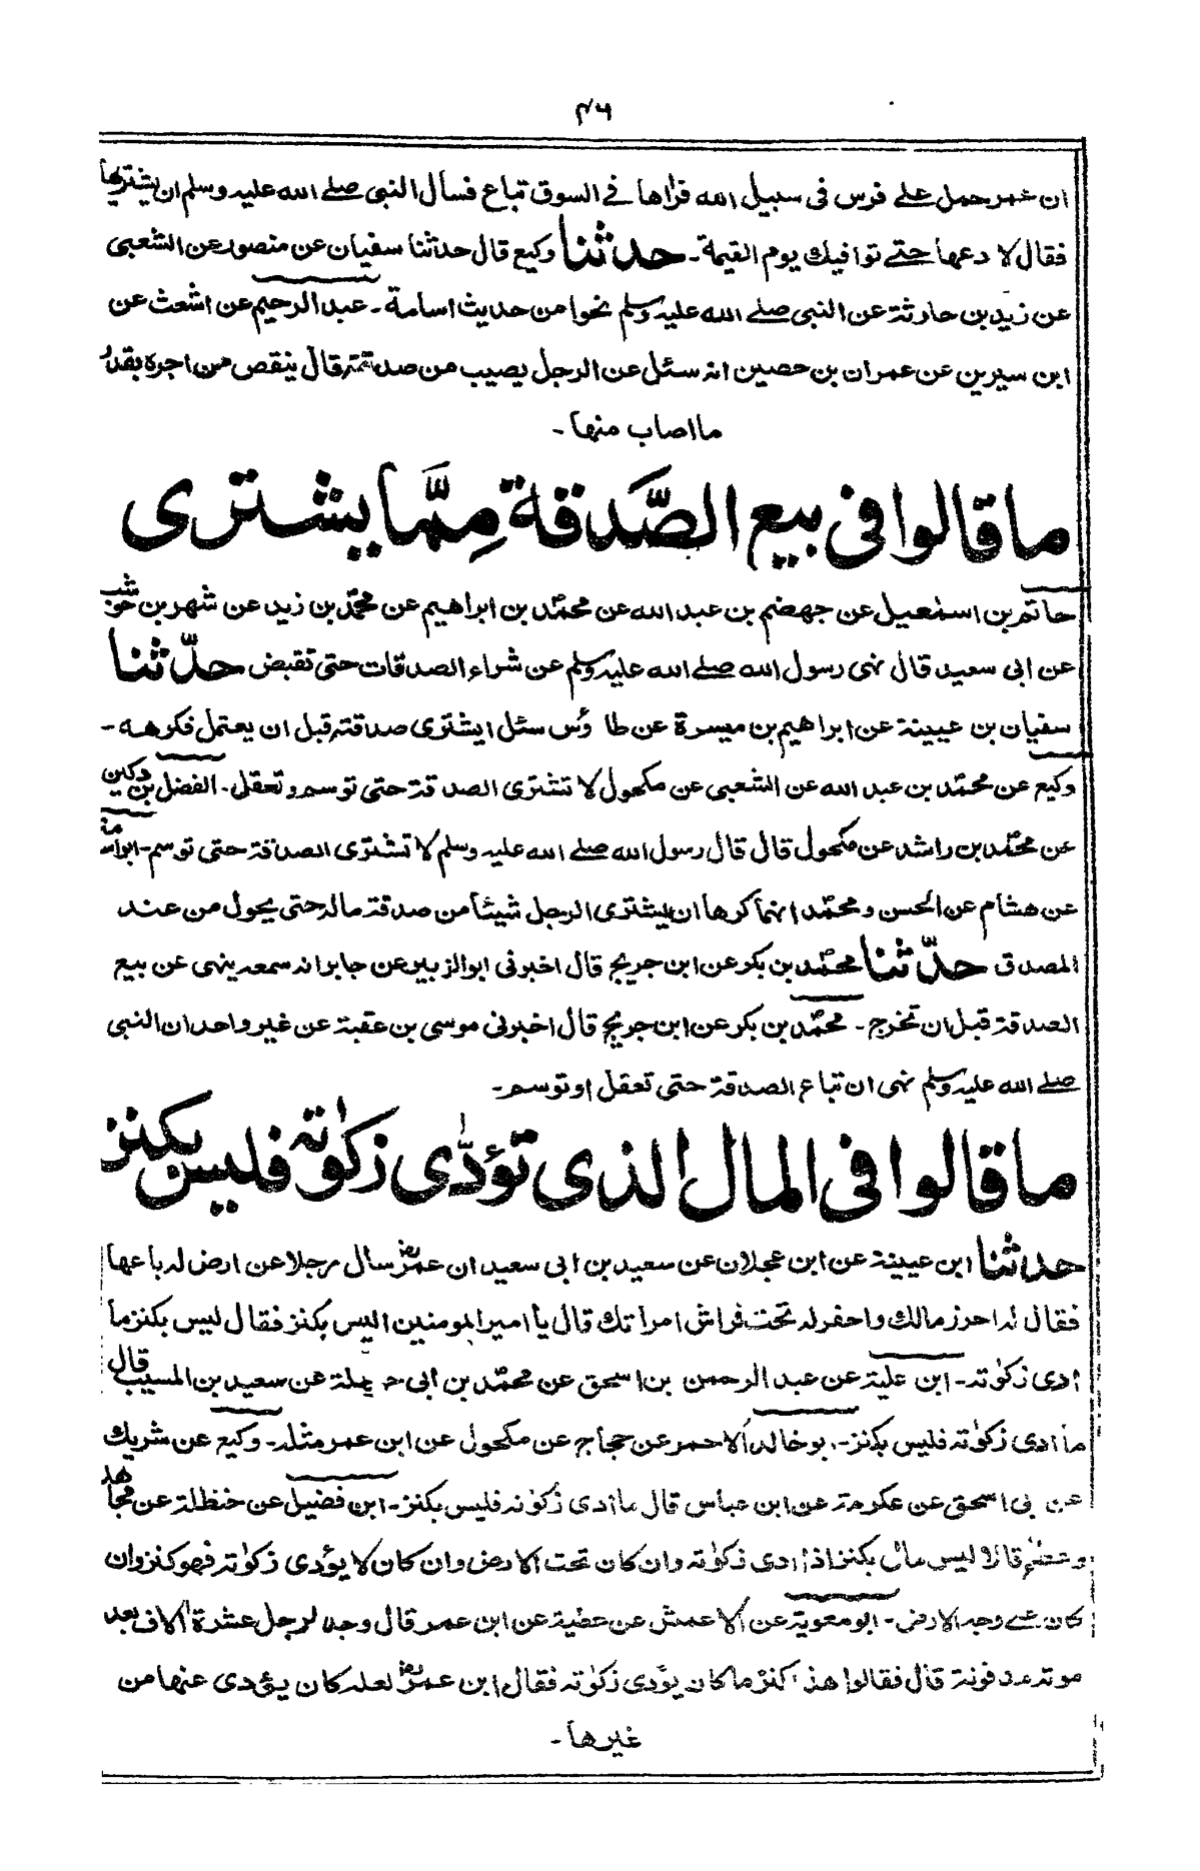 ۴۶
ان عمر حمل علے فرس فی سبیل الله فراها فے السوق تباع فسأل النبی صلے الله علیه وسلم ان یشتریها
فقال لا دعها حتے توافیك یوم القیمة ـ حدثنا وکیع قال حدثنا سفیان عن منصور عن الشعبی
عن زید بن حارثة عن النبی صلے الله علیه وسلم نحوا من حدیث اسامة ـ عبد الرحیم عن اشعث عن
ابن سیرین عن عمران بن حصین انه سئل عن الرجل یصیب من صدقته قال ینقص من اجره بقدر
ما اصاب منها ـ
ما قالوا فی بیع الصَّدَقة مِمَّا یشتری
حاتم بن اسمٰعیل عن جهضم بن عبد الله عن محمّد بن ابراهیم عن محمّد بن زید عن شهر بن حوشب
عن ابی سعید قال نهی رسول الله صلے الله علیه وسلم عن شراء الصدقات حتی تقبض حدّثنا
سفیان بن عیینة عن ابراهیم بن میسرة عن طاوٗس سئل ایشتری صدقته قبل ان یعتمل فکرهه ـ
وکیع عن محمّد بن عبد الله عن الشعبی عن مکحول لا تشتری الصدقة حتی توسم وتعقل ـ الفضل بن دکین
عن محمّد بن راشد عن مکحول قال قال رسول الله صلے الله علیه وسلم لا تشتری الصدقة حتی توسم ـ ابو اسامة
عن هشام عن الحسن ومحمّد انهما کرها ان یشتری الرجل شیئا من صدقة ماله حتی یحول من عند
المصدق حدّثنا محمّد بن بکر عن ابن جریج قال اخبرنی ابو الزبیر عن جابر انه سمعه ینهی عن بیع
الصدقة قبل ان تخرج ـ محمّد بن بکر عن ابن جریج قال اخبرنی موسی بن عقبة عن غیر واحد ان النبی
صلے الله علیه وسلم نهی ان تباع الصدقة حتی تعقل او توسم ـ
ما قالوا فی المال الذی تؤدّی زکوٰته فلیس بکنز
حدثنا ابن عیینة عن ابن عجلان عن سعید بن ابی سعید ان عمرؓ سال رجلا عن ارض له باعها
فقال له احرز مالك واحفر له تحت فراش امراتك قال یا امیر المومنین الیس بکنز فقال لیس بکنز ما
ادی زکوٰته ـ ابن علیة عن عبد الرحمن بن اسحق عن محمّد بن ابی حملة عن سعید بن المسیب قال
ما ادی زکوٰته فلیس بکنز ـ ابو خالد الاحمر عن حجاج عن مکحول عن ابن عمر مثله ـ وکیع عن شریك
عن ابی اسحق عن عکرمة عن ابن عباس قال ما ادی زکوٰته فلیس بکنز ـ ابن فضیل عن حنظلة عن مجاهد
وعطاء قالا لیس مال بکنز اذا ادی زکوٰته وان کان تحت الارض وان کان لا یؤدی زکوٰته فهو کنز وان
کان علے وجه الارض ـ ابو معویة عن الاعمش عن عطیة عن ابن عمر قال وجد لرجل عشرة اٰلاف بعد
موته مدفونة قال فقالوا هذا کنز ما کان یؤدی زکوٰته فقال ابن عمرؓ لعله کان یؤدی عنها من
غیرها ـ